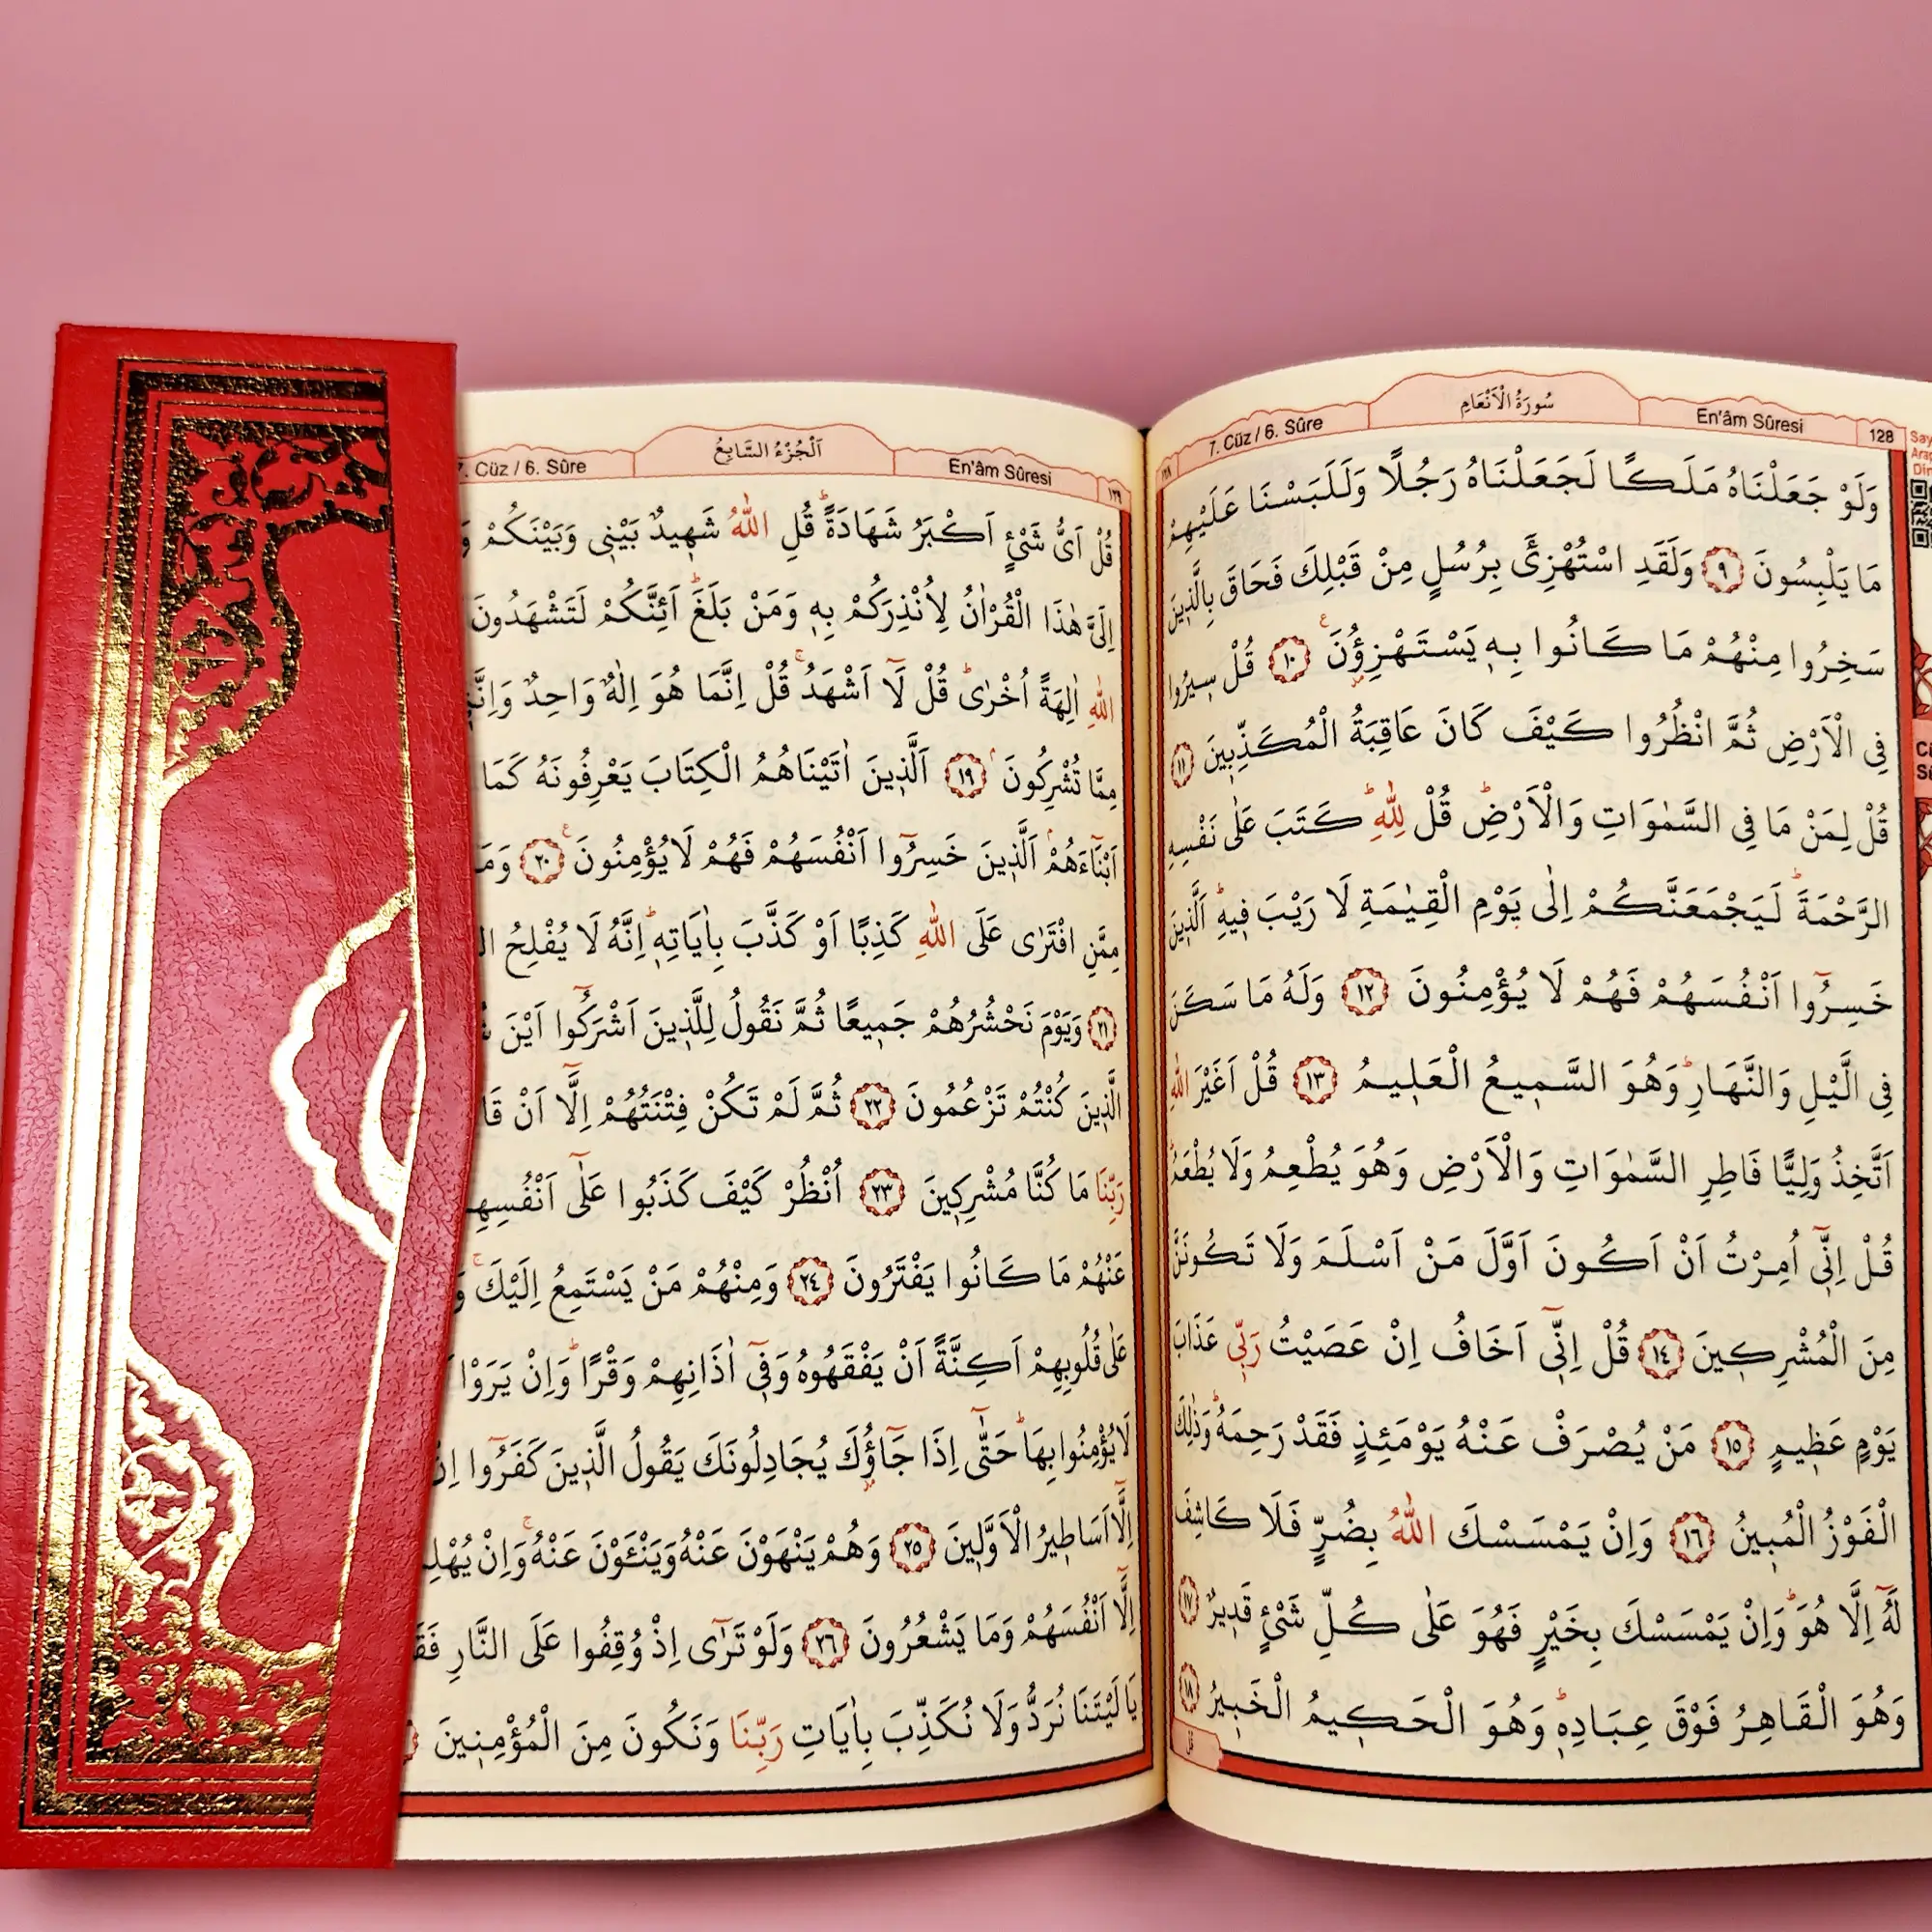 7. Cüz / 6. Sûre
سُورَةُ الْاَنْعَامِ
En'âm Sûresi
128
وَلَوْ جَعَلْنَاهُ مَلَكًا لَجَعَلْنَاهُ رَجُلًا وَلَلَبَسْنَا عَلَيْهِمْ
مَا يَلْبِسُونَ ﴿٩﴾ وَلَقَدِ اسْتُهْزِئَ بِرُسُلٍ مِنْ قَبْلِكَ فَحَاقَ بِالَّذ۪ينَ
سَخِرُوا مِنْهُمْ مَا كَانُوا بِه۪ يَسْتَهْزِؤُ۫نَ ﴿١٠﴾ قُلْ س۪يرُوا
فِي الْاَرْضِ ثُمَّ انْظُرُوا كَيْفَ كَانَ عَاقِبَةُ الْمُكَذِّب۪ينَ ﴿١١﴾
قُلْ لِمَنْ مَا فِي السَّمٰوَاتِ وَالْاَرْضِۜ قُلْ لِلّٰهِۜ كَتَبَ عَلٰى نَفْسِهِ
الرَّحْمَةَۜ لَيَجْمَعَنَّكُمْ اِلٰى يَوْمِ الْقِيٰمَةِ لَا رَيْبَ ف۪يهِۜ اَلَّذ۪ينَ
خَسِرُٓوا اَنْفُسَهُمْ فَهُمْ لَا يُؤْمِنُونَ ﴿١٢﴾ وَلَهُ مَا سَكَنَ
فِي الَّيْلِ وَالنَّهَارِۜ وَهُوَ السَّم۪يعُ الْعَل۪يمُ ﴿١٣﴾ قُلْ اَغَيْرَ اللّٰهِ
اَتَّخِذُ وَلِيًّا فَاطِرِ السَّمٰوَاتِ وَالْاَرْضِ وَهُوَ يُطْعِمُ وَلَا يُطْعَمُۜ
قُلْ اِنّ۪ٓي اُمِرْتُ اَنْ اَكُونَ اَوَّلَ مَنْ اَسْلَمَ وَلَا تَكُونَنَّ
مِنَ الْمُشْرِك۪ينَ ﴿١٤﴾ قُلْ اِنّ۪ٓي اَخَافُ اِنْ عَصَيْتُ رَبّ۪ي عَذَابَ
يَوْمٍ عَظ۪يمٍ ﴿١٥﴾ مَنْ يُصْرَفْ عَنْهُ يَوْمَئِذٍ فَقَدْ رَحِمَهُۜ وَذٰلِكَ
الْفَوْزُ الْمُب۪ينُ ﴿١٦﴾ وَاِنْ يَمْسَسْكَ اللّٰهُ بِضُرٍّ فَلَا كَاشِفَ
لَهُٓ اِلَّا هُوَۜ وَاِنْ يَمْسَسْكَ بِخَيْرٍ فَهُوَ عَلٰى كُلِّ شَيْءٍ قَد۪يرٌ ﴿١٧﴾
وَهُوَ الْقَاهِرُ فَوْقَ عِبَادِه۪ۜ وَهُوَ الْحَك۪يمُ الْخَب۪يرُ ﴿١٨﴾
7. Cüz / 6. Sûre
اَلْجُزْءُ السَّابِعُ
En'âm Sûresi
١٢٩
قُلْ اَيُّ شَيْءٍ اَكْبَرُ شَهَادَةًۜ قُلِ اللّٰهُ شَه۪يدٌ بَيْن۪ي وَبَيْنَكُمْ
اِلَيَّ هٰذَا الْقُرْاٰنُ لِاُنْذِرَكُمْ بِه۪ وَمَنْ بَلَغَۜ اَئِنَّكُمْ لَتَشْهَدُونَ
اللّٰهِ اٰلِهَةً اُخْرٰىۜ قُلْ لَٓا اَشْهَدُۚ قُلْ اِنَّمَا هُوَ اِلٰهٌ وَاحِدٌ
مِمَّا تُشْرِكُونَۢ ﴿١٩﴾ اَلَّذ۪ينَ اٰتَيْنَاهُمُ الْكِتَابَ يَعْرِفُونَهُ كَمَا
اَبْنَٓاءَهُمْۢ اَلَّذ۪ينَ خَسِرُٓوا اَنْفُسَهُمْ فَهُمْ لَا يُؤْمِنُونَ۟ ﴿٢٠﴾
مِمَّنِ افْتَرٰى عَلَى اللّٰهِ كَذِبًا اَوْ كَذَّبَ بِاٰيَاتِه۪ۜ اِنَّهُ لَا يُفْلِحُ
﴿٢١﴾ وَيَوْمَ نَحْشُرُهُمْ جَم۪يعًا ثُمَّ نَقُولُ لِلَّذ۪ينَ اَشْرَكُٓوا اَيْنَ
الَّذ۪ينَ كُنْتُمْ تَزْعُمُونَ ﴿٢٢﴾ ثُمَّ لَمْ تَكُنْ فِتْنَتُهُمْ اِلَّٓا اَنْ
رَبِّنَا مَا كُنَّا مُشْرِك۪ينَ ﴿٢٣﴾ اُنْظُرْ كَيْفَ كَذَبُوا عَلٰٓى
عَنْهُمْ مَا كَانُوا يَفْتَرُونَ ﴿٢٤﴾ وَمِنْهُمْ مَنْ يَسْتَمِعُ اِلَيْكَۚ
عَلٰى قُلُوبِهِمْ اَكِنَّةً اَنْ يَفْقَهُوهُ وَف۪ٓي اٰذَانِهِمْ وَقْرًاۜ وَاِنْ يَرَوْا
لَا يُؤْمِنُوا بِهَاۜ حَتّٰٓى اِذَا جَٓاؤُ۫كَ يُجَادِلُونَكَ يَقُولُ الَّذ۪ينَ كَفَرُٓوا اِنْ
اِلَّٓا اَسَاط۪يرُ الْاَوَّل۪ينَ ﴿٢٥﴾ وَهُمْ يَنْهَوْنَ عَنْهُ وَيَنْـَٔوْنَ عَنْهُۚ وَاِنْ
اِلَّٓا اَنْفُسَهُمْ وَمَا يَشْعُرُونَ ﴿٢٦﴾ وَلَوْ تَرٰٓى اِذْ وُقِفُوا عَلَى النَّارِ
يَا لَيْتَنَا نُرَدُّ وَلَا نُكَذِّبَ بِاٰيَاتِ رَبِّنَا وَنَكُونَ مِنَ الْمُؤْمِن۪ينَ